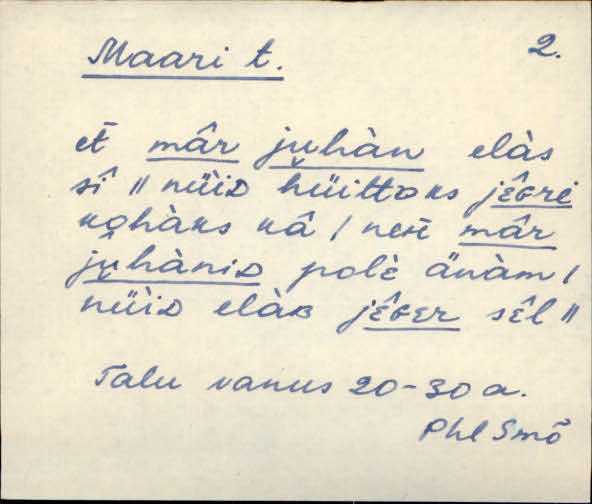 Maari t. 2.
et̄ mâr juhàn elàs
sî ॥ nüìᴅ hüittoᴋs jêɢre
ᴋohàᴋs ᴋâ / neĭt mâr
juhàniᴅ polè änàm /
nüìᴅ elàʙ jêɢᴇr sêl ॥
Talu vanus 20-30 a.
Phl Smõ